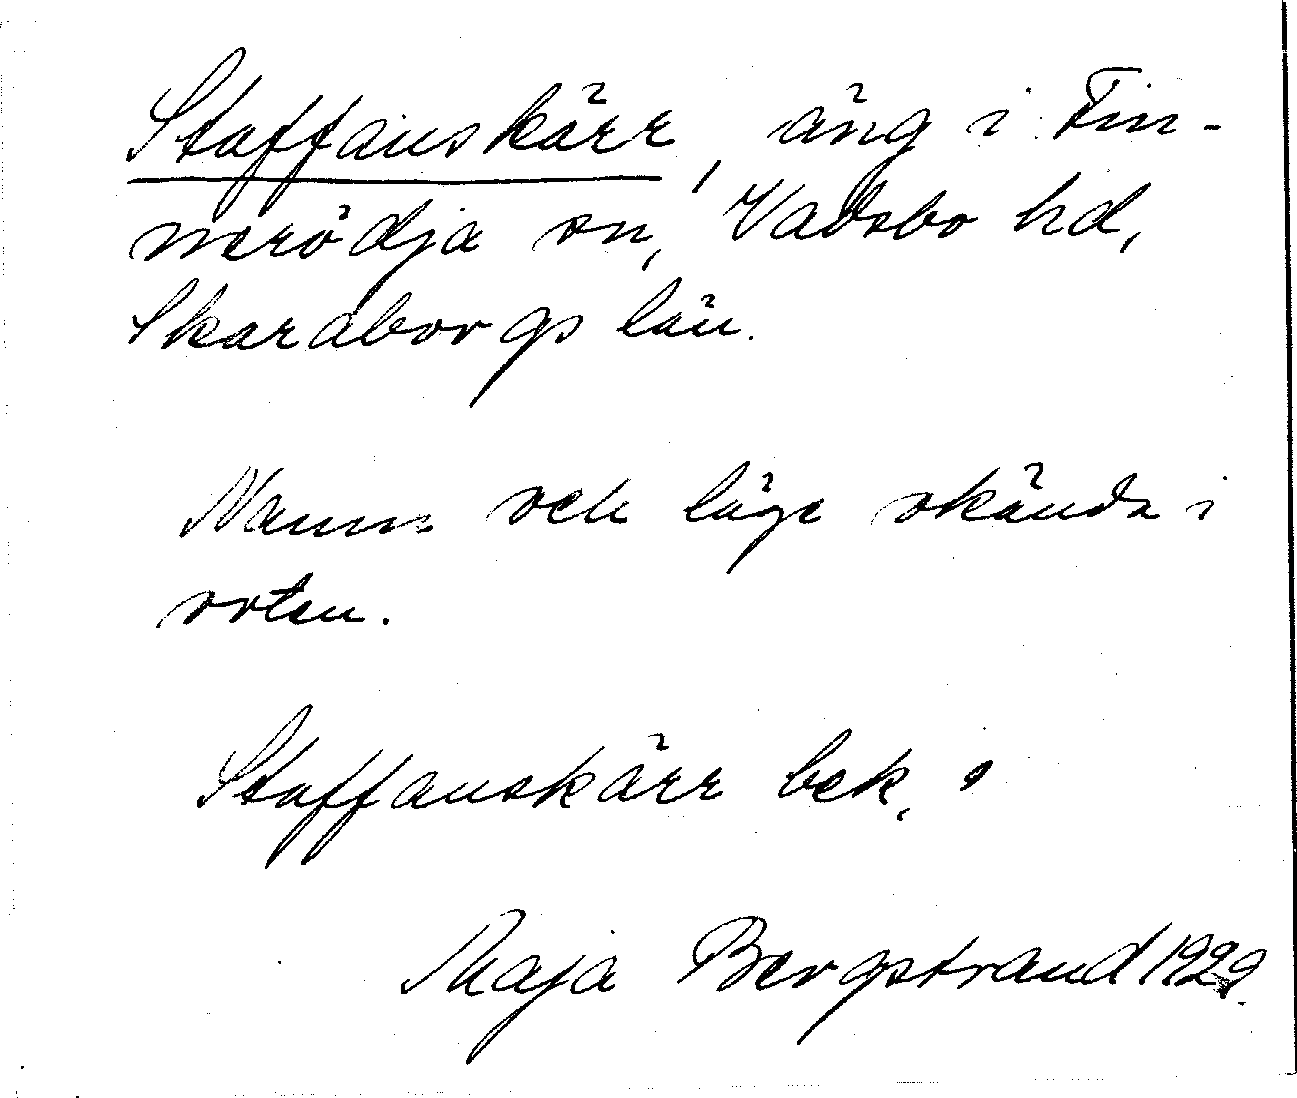 Staffanskärr, äng i Fin-
nerödja sn, Vadsbo hd,
Skaraborgs län.
Namn och läge okända i
orten.
Staffanskärr bek.
Maja Bergstrand 1929.